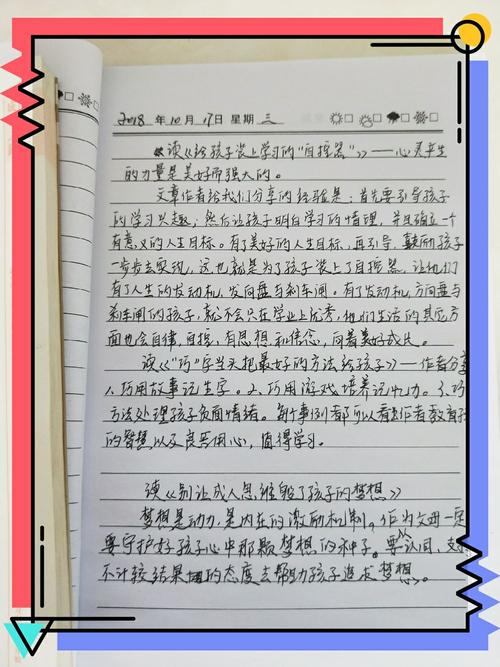 2018 年 10 月 17 日 星期 三
《读《给孩子装上学习的"自控器"》——心灵产生
的力量是美好而强大的。
文章作者给我们分享的经验是：首先要引导孩子
的学习兴趣，然后让孩子明白学习的情理，并且确立一个
有意义的人生目标。有了美好的人生目标，再引导，鼓励孩子
一步步去实现，这也就是为了孩子装上了自控器，让他们
有了人生的发动机，方向盘与刹车闸。有了发动机，方向盘与
刹车闸的孩子，就不会只在学业上优秀，他们生活的其它方
面也会自律，自控，有思想和信念，向着美好成长。
读《"巧"字当头把最好的方法给孩子》——作者分享
1、巧用故事记生字。2、巧用游戏培养记忆力。3、巧
方法处理孩子负面情绪。每个事例都可以看出作者教育孩
的智慧以及良苦用心，值得学习。
读《别让成人思维毁了孩子的梦想》
梦想是动力，是内在的激励机制。作为父母一定
要守护好孩子心中那颗梦想的种子。要以认同，支
不计较结果的态度去帮助孩子追求梦想。